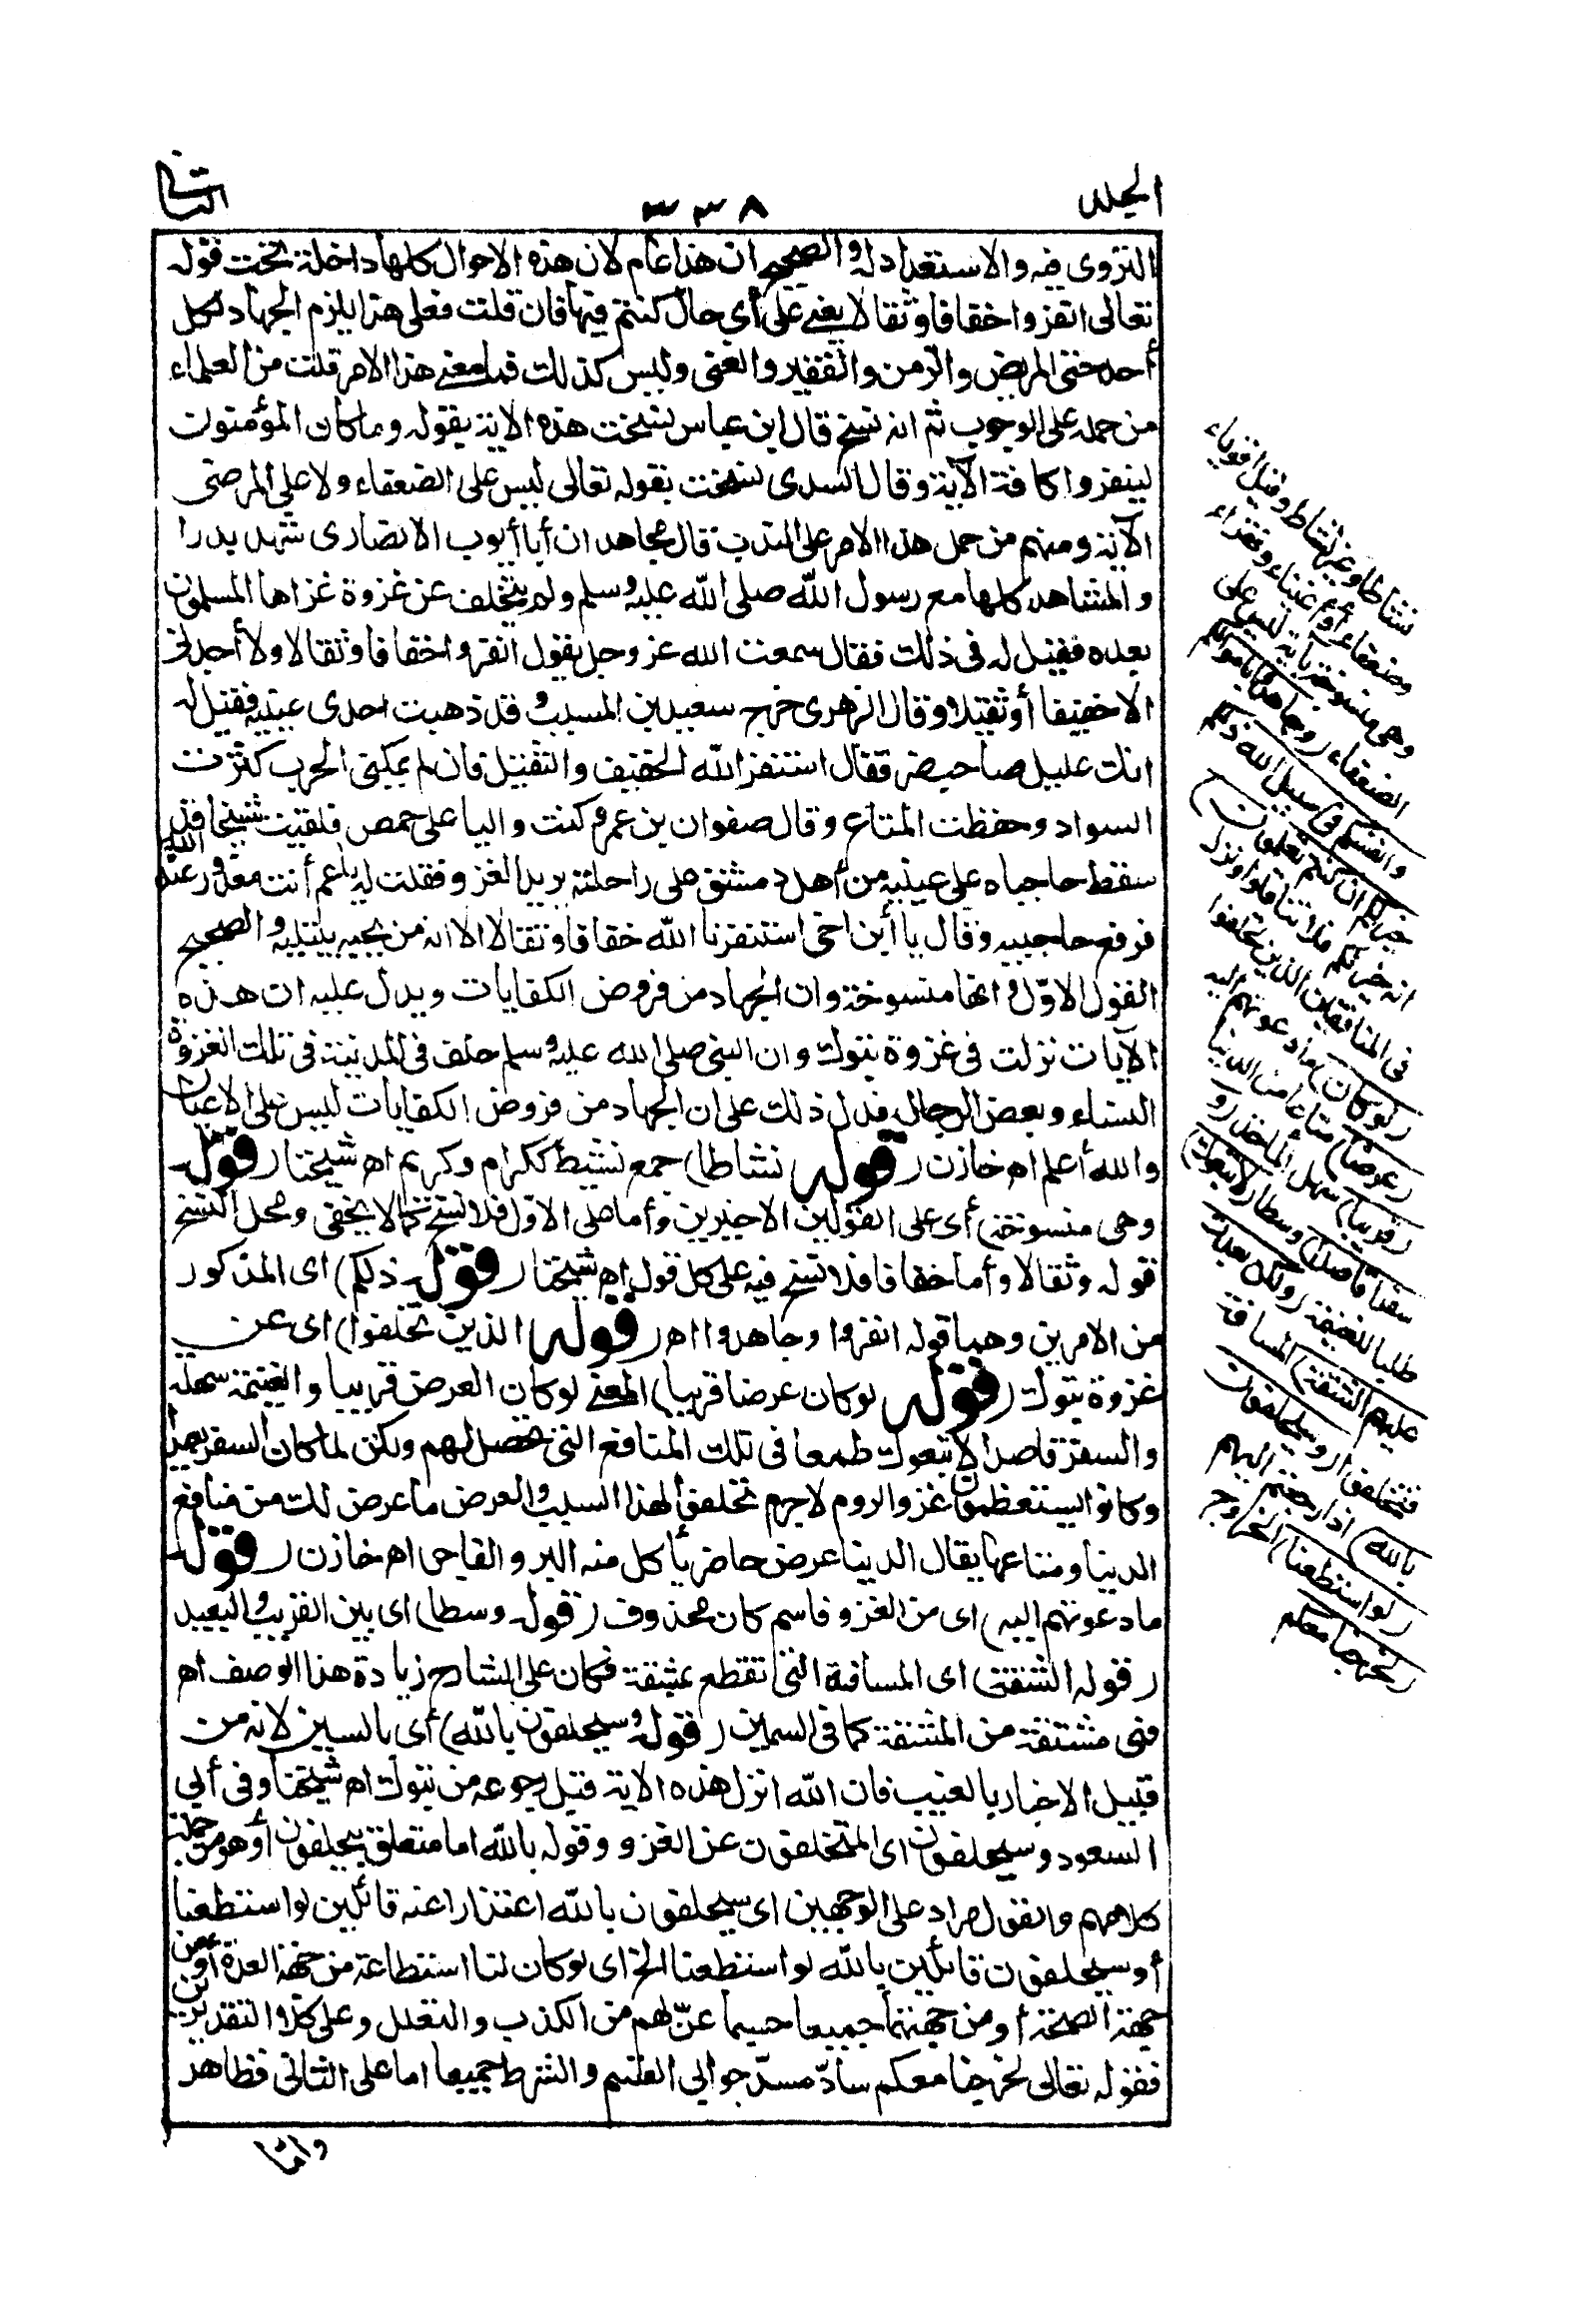 الجلد
٣٣٨
الثانى
التروى فيه والاستعداد له والصحيح ان هذا عام لان هذه الاحوال كلها داخلة تحت قوله
تعالى انفروا خفافا وثقالا يعنى على أى حال كنتم فيها فان قلت فعلى هذا يلزم الجهاد لكل
أحد حتى المريض والزمن والفقير والغنى وليس كذلك فما معنى هذا الامر قلت من العلماء
من حمله على الوجوب ثم انه نسخ قال ابن عباس نسخت هذه الاية بقوله وما كان المؤمنون
لينفروا كافة الآية وقال السدى نسخت بقوله تعالى ليس على الضعفاء ولا على المرضى
الآية ومنهم من حمل هذا الامر على الندب قال مجاهد ان أبا أيوب الانصارى شهد بدرا
والمشاهد كلها مع رسول الله صلى الله عليه وسلم ولم يتخلف عن غزوة غزاها المسلمون
بعده فقيل له فى ذلك فقال سمعت الله عز وجل يقول انفروا خفافا وثقالا ولا أجدنى
الا خفيفا أو ثقيلا وقال الزهرى خرج سعيد بن المسيب وقد ذهبت احدى عينيه فقيل له
انك عليل صاحب ضر فقال استنفر الله الخفيف والثقيل فان لم يمكنى الحرب كثرت
السواد وحفظت المتاع وقال صفوان بن عمرو كنت واليا على حمص فلقيت شيخا قد
سقط حاجباه على عينيه من أهل دمشق على راحلته يريد الغزو فقلت له يا عم أنت معذور عند الله
فرفع حاجبيه وقال يا أبن اخى استنفرنا الله خفافا وثقالا الا انه من يحبه يبتليه والصحيح
القول الاول وانها منسوخة وان الجهاد من فروض الكفايات ويدل عليه ان هذه
الآيات نزلت فى غزوة تبوك وان النبى صلى الله عليه وسلم خلف فى المدينة فى تلك الغزوة
النساء وبعض الرجال فدل ذلك على ان الجهاد من فروض الكفايات ليس على الاعيان
والله أعلم اه خازن (قوله نشاطا) جمع نشيط ككرام وكريم اه شيخنا (قوله
وهى منسوخة) أى على القولين الاخيرين وأما على الاول فلا نسخ كما لا يخفى ومحل النسخ
قوله وثقالا وأما خفافا فلا نسخ فيه على كل قول اه شيخنا (قوله ذلكم) اى المذكور
من الامرين وهما قوله انفروا وجاهدوا اه (قوله الذين تخلفوا) اى عن
غزوة تبوك (قوله لو كان عرضا قريبا) المعنى لو كان العرض قريبا والغنيمة سهلة
والسفر قاصدا لاتبعوك طمعا فى تلك المنافع التى تحصل لهم ولكن لما كان السفر بعيدا
وكانوا يستعظمون غزو الروم لا جرم تخلفوا لهذا السبب والعرض ما عرض لك من منافع
الدنيا ومتاعها يقال الدنيا عرض حاضر يأكل منه البر والفاجر اه خازن (قوله
ما دعوتهم اليه) اى من الغزو فاسم كان محذوف (قوله وسطا) اى بين القريب والبعيد
(قوله الشقة) اى المسافة التى تقطع بمشقة فكان على الشارح زيادة هذا الوصف اه
فهى مشتقة من المشقة كما فى السمين (قوله وسيحلفون بالله) أى بالسين لانه من
قبيل الاخبار بالغيب فان الله انزل هذه الاية قبل رجوعه من تبوك اه شيخنا وفى أبى
السعود وسيحلفون اى المتخلفون عن الغزو وقوله بالله اما متعلق بيحلفون أو هو من جملة
كلامهم والقول مراد على الوجهين اى سيحلفون بالله اعتذارا عنه قائلين لو استطعنا
أو سيحلفون قائلين بالله لو استطعنا الخ اى لو كان لنا استطاعة من جهة العدة أو من
جهة الصحة أو من جهتهما جميعا حسبما عنّ لهم من الكذب والتعلل وعلى كلا التقديرين
فقوله تعالى لخرجنا معكم سادّ مسدّ جوابى القسم والشرط جميعا اما على الثانى فظاهر
واما
نشاطا وغير نشاط وقيل اقوياء
وضعفاء أو أغنياء وفقراء
وهى منسوخة بآية ليس على
الضعفاء (وجاهدوا باموالكم
وانفسكم فى سبيل الله ذلكم
خير لكم ان كنتم تعلمون)
انه خير لكم فلا تثاقلوا ونزل
فى المنافقين الذين تخلفوا
(لو كان) ما دعوتهم اليه
(عرضا) متاعا من الدنيا
(قريبا) سهل المأخذ (و
سفرا قاصدا) وسطا (لاتبعوك)
طلبا للغنيمة (ولكن بعدت
عليهم الشقة) المسافة
فتخلفوا (وسيحلفون
بالله) اذا رجعتم اليهم
(لو استطعنا) الخروج
(لخرجنا معكم